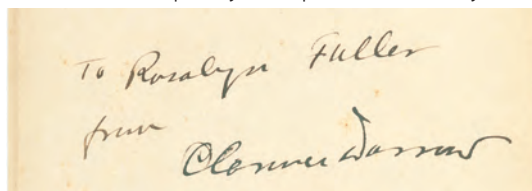 To Rosalyn Fuller
from
Clarence Darrow